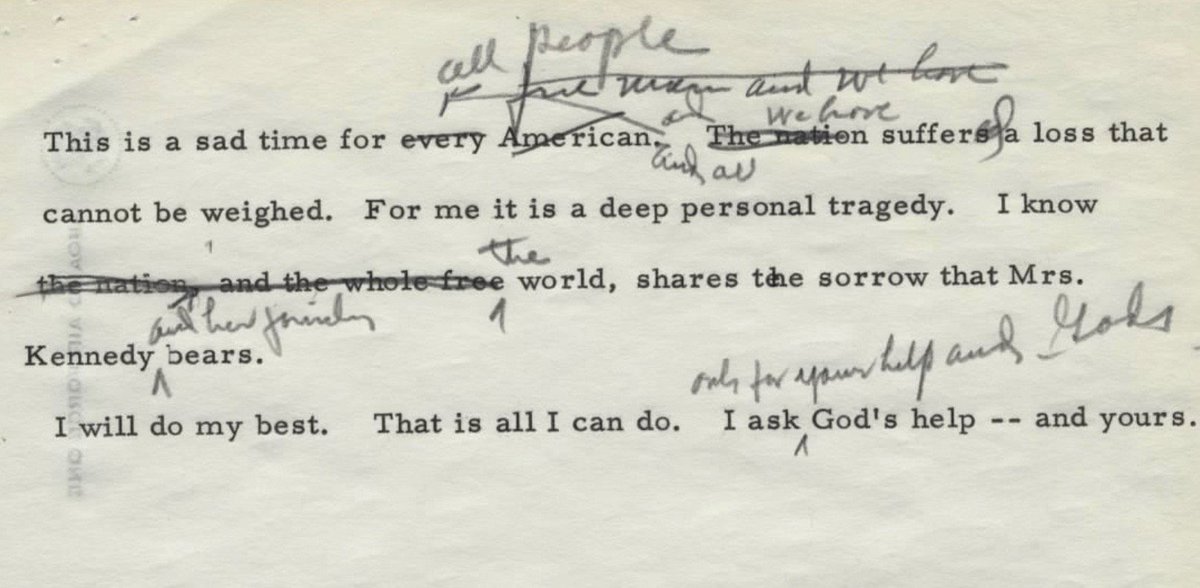 all people
free men and we have
and we have
This is a sad time for every American. The nation suffers a loss that
and all
cannot be weighed. For me it is a deep personal tragedy. I know
the
the nation, and the whole free world, shares the sorrow that Mrs.
and her family
Kennedy bears.
only for your help and God's
I will do my best. That is all I can do. I ask God's help -- and yours.